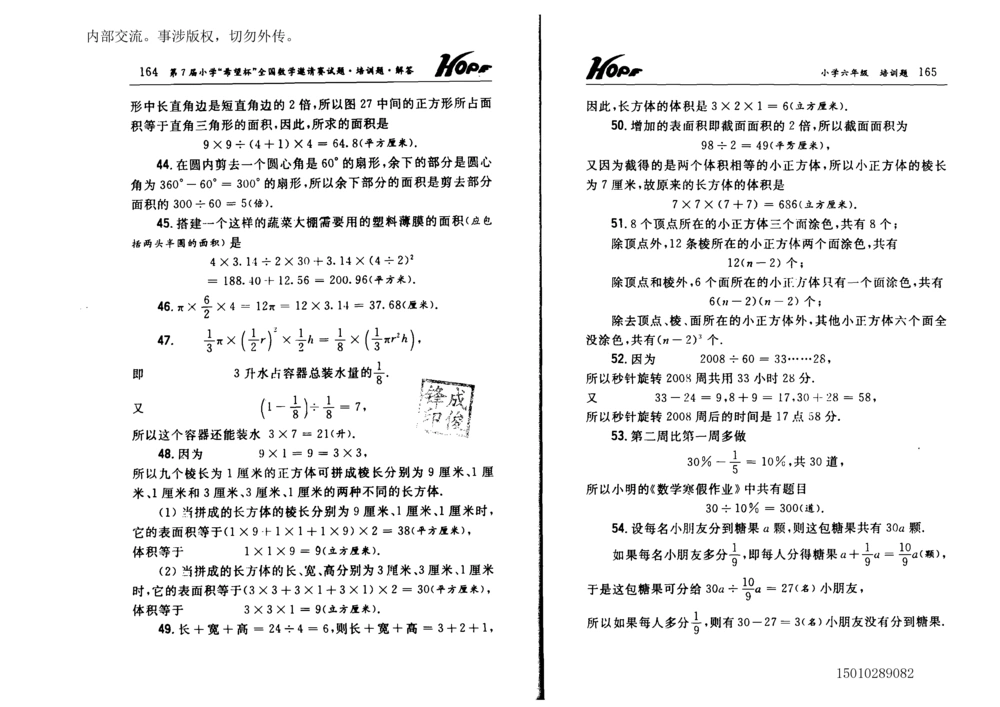 内部交流。事涉版权，切勿外传。
164 第7届小学“希望杯”全国数学邀请赛试题·培训题·解答 HOPE
形中长直角边是短直角边的 2 倍,所以图 27 中间的正方形所占面
积等于直角三角形的面积,因此,所求的面积是
9×9÷(4+1)×4=64.8(平方厘米).
44. 在圆内剪去一个圆心角是 60° 的扇形,余下的部分是圆心
角为 360°－60°＝300° 的扇形,所以余下部分的面积是剪去部分
面积的 300÷60＝5(倍).
45. 搭建一个这样的蔬菜大棚需要用的塑料薄膜的面积(应包
括两头半圆的面积)是
4×3.14÷2×30+3.14×(4÷2)²
=188.40+12.56=200.96(平方米).
46. π×6/2×4=12π=12×3.14=37.68(厘米).
47. 1/3π×(1/2r)²×1/2h=1/8×(1/3πr²h),
即 3 升水占容器总装水量的1/8.
又 (1-1/8)÷1/8=7,
所以这个容器还能装水 3×7=21(升).
48. 因为 9×1=9=3×3,
所以九个棱长为 1 厘米的正方体可拼成棱长分别为 9 厘米、1 厘
米、1 厘米和 3 厘米、3 厘米、1 厘米的两种不同的长方体.
(1) 当拼成的长方体的棱长分别为 9 厘米、1 厘米、1 厘米时,
它的表面积等于(1×9+1×1+1×9)×2=38(平方厘米),
体积等于 1×1×9=9(立方厘米).
(2) 当拼成的长方体的长、宽、高分别为 3 厘米、3 厘米、1 厘米
时,它的表面积等于(3×3+3×1+3×1)×2=30(平方厘米),
体积等于 3×3×1=9(立方厘米).
49. 长+宽+高=24÷4=6,则长+宽+高=3+2+1,
锋成
印俊
HOPE 小学六年级 培训题 165
因此,长方体的体积是 3×2×1=6(立方厘米).
50. 增加的表面积即截面面积的 2 倍,所以截面面积为
98÷2=49(平方厘米),
又因为截得的是两个体积相等的小正方体,所以小正方体的棱长
为 7 厘米,故原来的长方体的体积是
7×7×(7+7)=686(立方厘米).
51. 8 个顶点所在的小正方体三个面涂色,共有 8 个;
除顶点外,12 条棱所在的小正方体两个面涂色,共有
12(n-2) 个;
除顶点和棱外,6 个面所在的小正方体只有一个面涂色,共有
6(n-2)(n-2) 个;
除去顶点、棱、面所在的小正方体外,其他小正方体六个面全
没涂色,共有(n-2)³ 个.
52. 因为 2008÷60=33……28,
所以秒针旋转 2008 周共用 33 小时 28 分.
又 33-24=9,8+9=17,30+28=58,
所以秒针旋转 2008 周后的时间是 17 点 58 分.
53. 第二周比第一周多做
30%-1/5=10%,共 30 道,
所以小明的《数学寒假作业》中共有题目
30÷10%=300(道).
54. 设每名小朋友分到糖果 a 颗,则这包糖果共有 30a 颗.
如果每名小朋友多分1/9,即每人分得糖果 a+1/9a=10/9a(颗),
于是这包糖果可分给 30a÷10/9a=27(名) 小朋友,
所以如果每人多分1/9,则有 30-27=3(名) 小朋友没有分到糖果.
15010289082